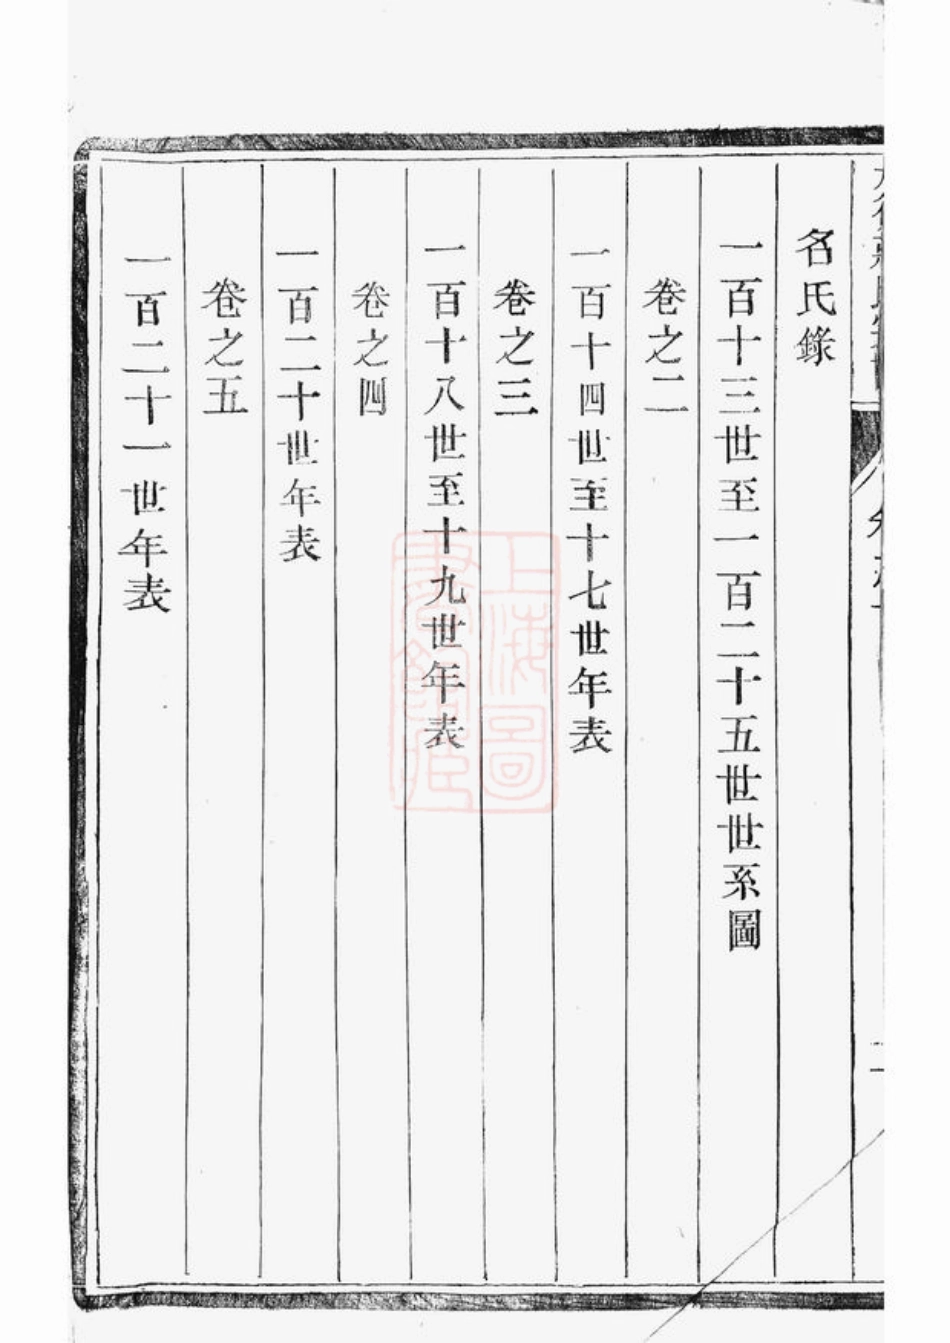 名氏錄
一百十三世至一百二十五世世系圖
卷之二
一百十四世至十七世年表
卷之三
一百十八世至十九世年表
卷之四
一百二十世年表
卷之五
一百二十一世年表
上海圖
書館藏